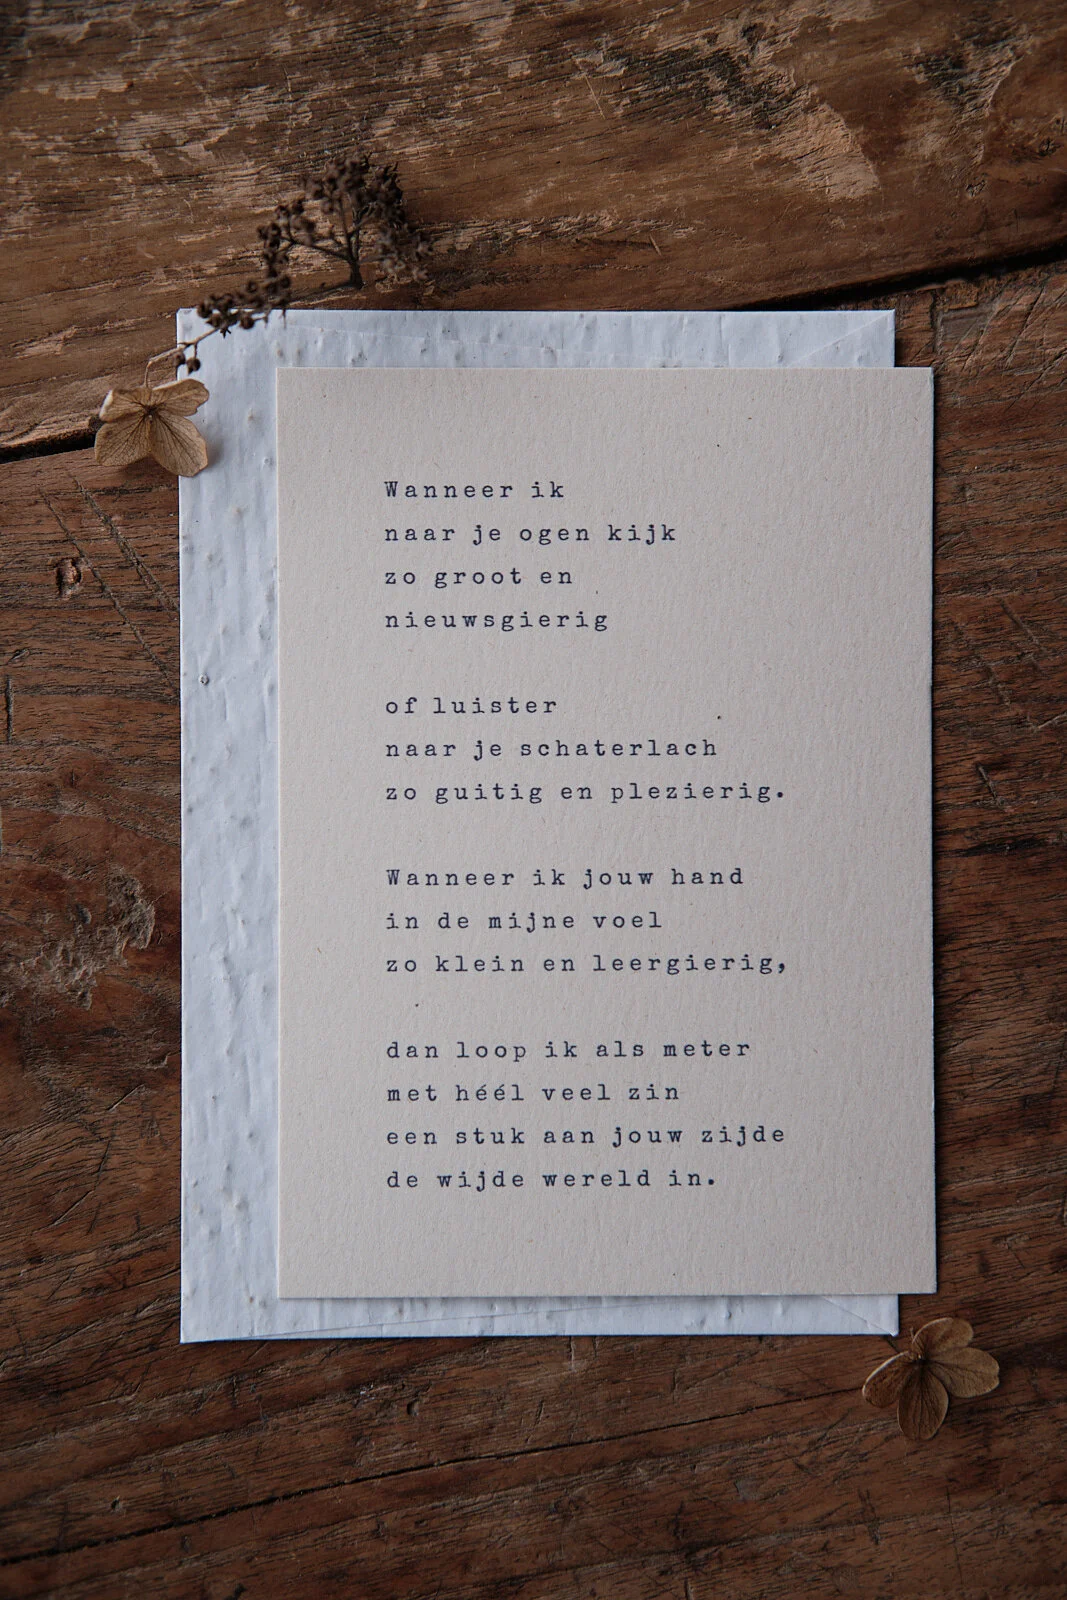 Wanneer ik
naar je ogen kijk
zo groot en
nieuwsgierig
of luister
naar je schaterlach
zo guitig en plezierig.
Wanneer ik jouw hand
in de mijne voel
zo klein en leergierig,
dan loop ik als meter
met héél veel zin
een stuk aan jouw zijde
de wijde wereld in.